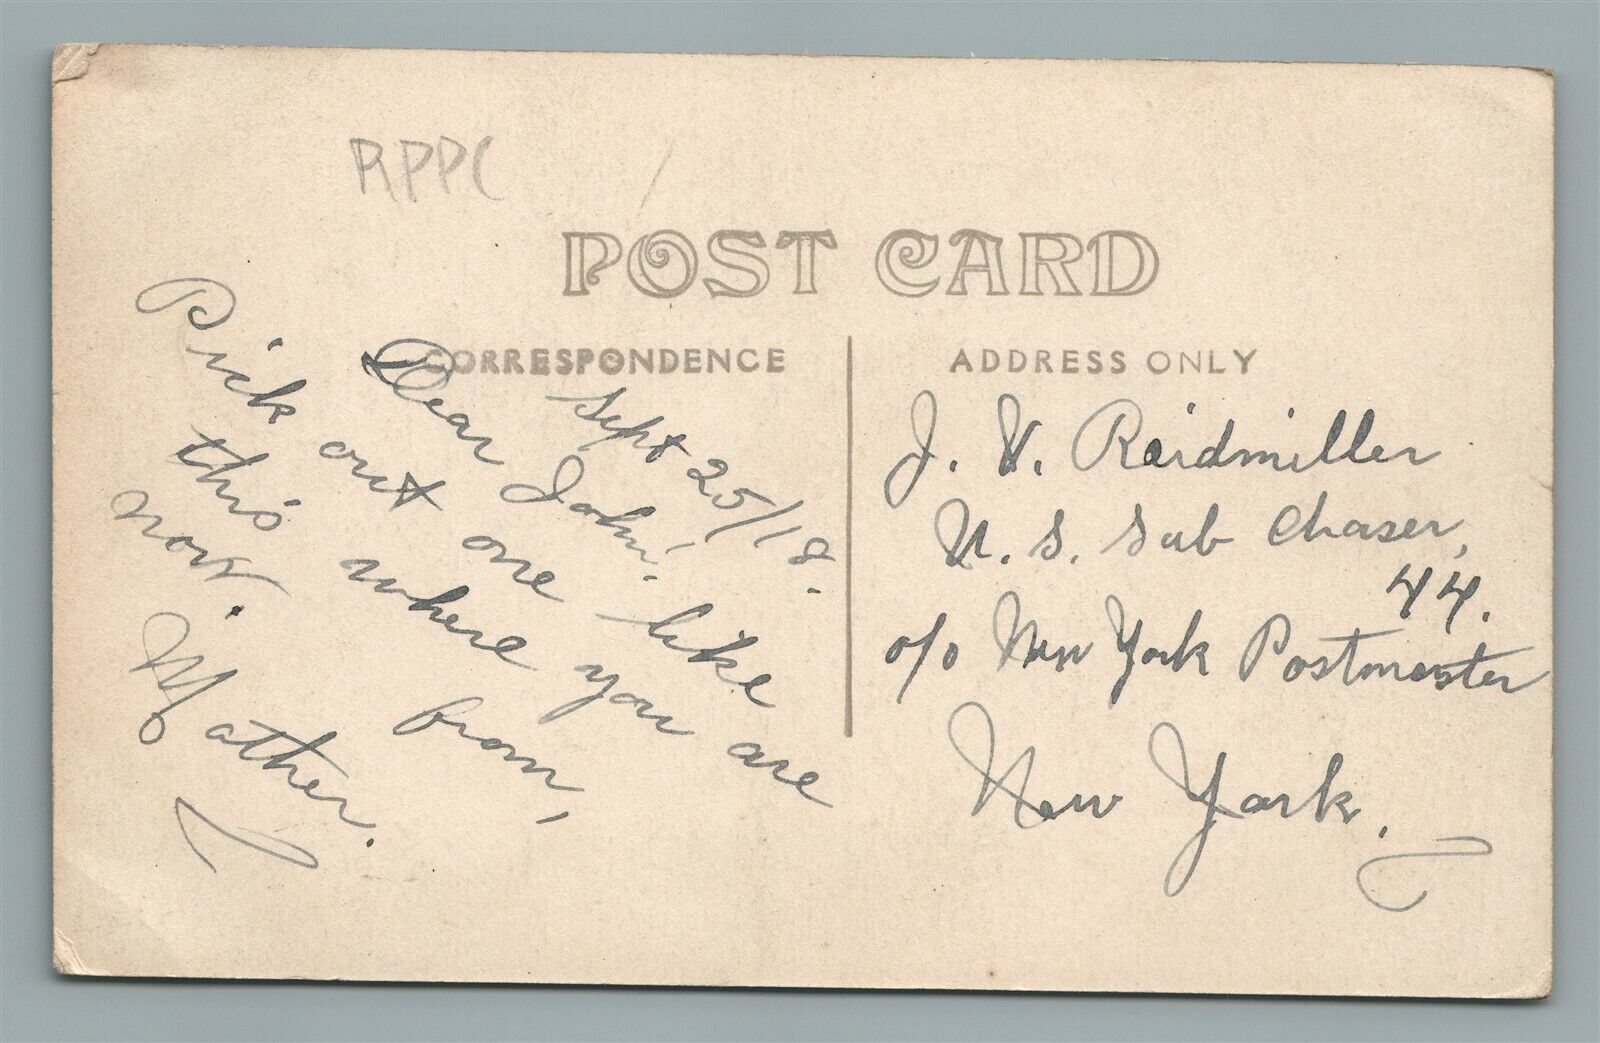 RPPC
POST CARD
CORRESPONDENCE
Sept 25/18.
Dear John:
Pick out one like
this where you are
now. from,
Mother.
ADDRESS ONLY
J. V. Raidmiller
U. S. Sub Chaser,
44.
c/o New York Postmaster
New York.